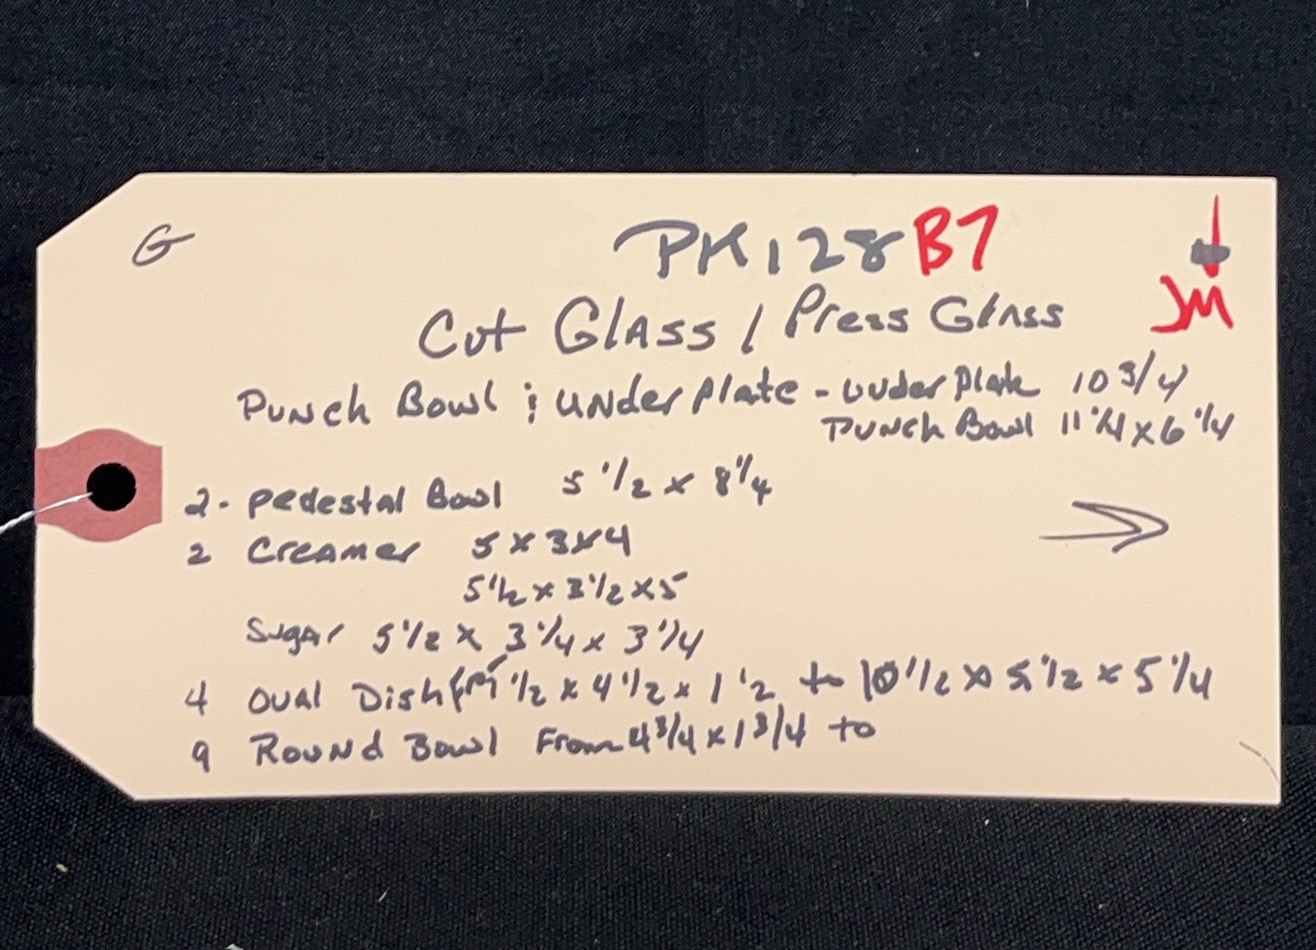 G PK128 B7
JM
Cut Glass / Press Glass
Punch Bowl ; Underplate - Underplate 10 3/4
Punch Bowl 11 1/4 x 6 1/4
2 - Pedestal Bowl 5 1/2 x 8 1/4
2 Creamer 5 x 3 x 4
5 1/2 x 3 1/2 x 5
Sugar 5 1/2 x 3 1/4 x 3 1/4
4 Oval Dish 1/2 x 4 1/2 x 1 1/2 to 10 1/2 x 5 1/2 x 5 1/4
9 Round Bowl From 4 3/4 x 1 3/4 to